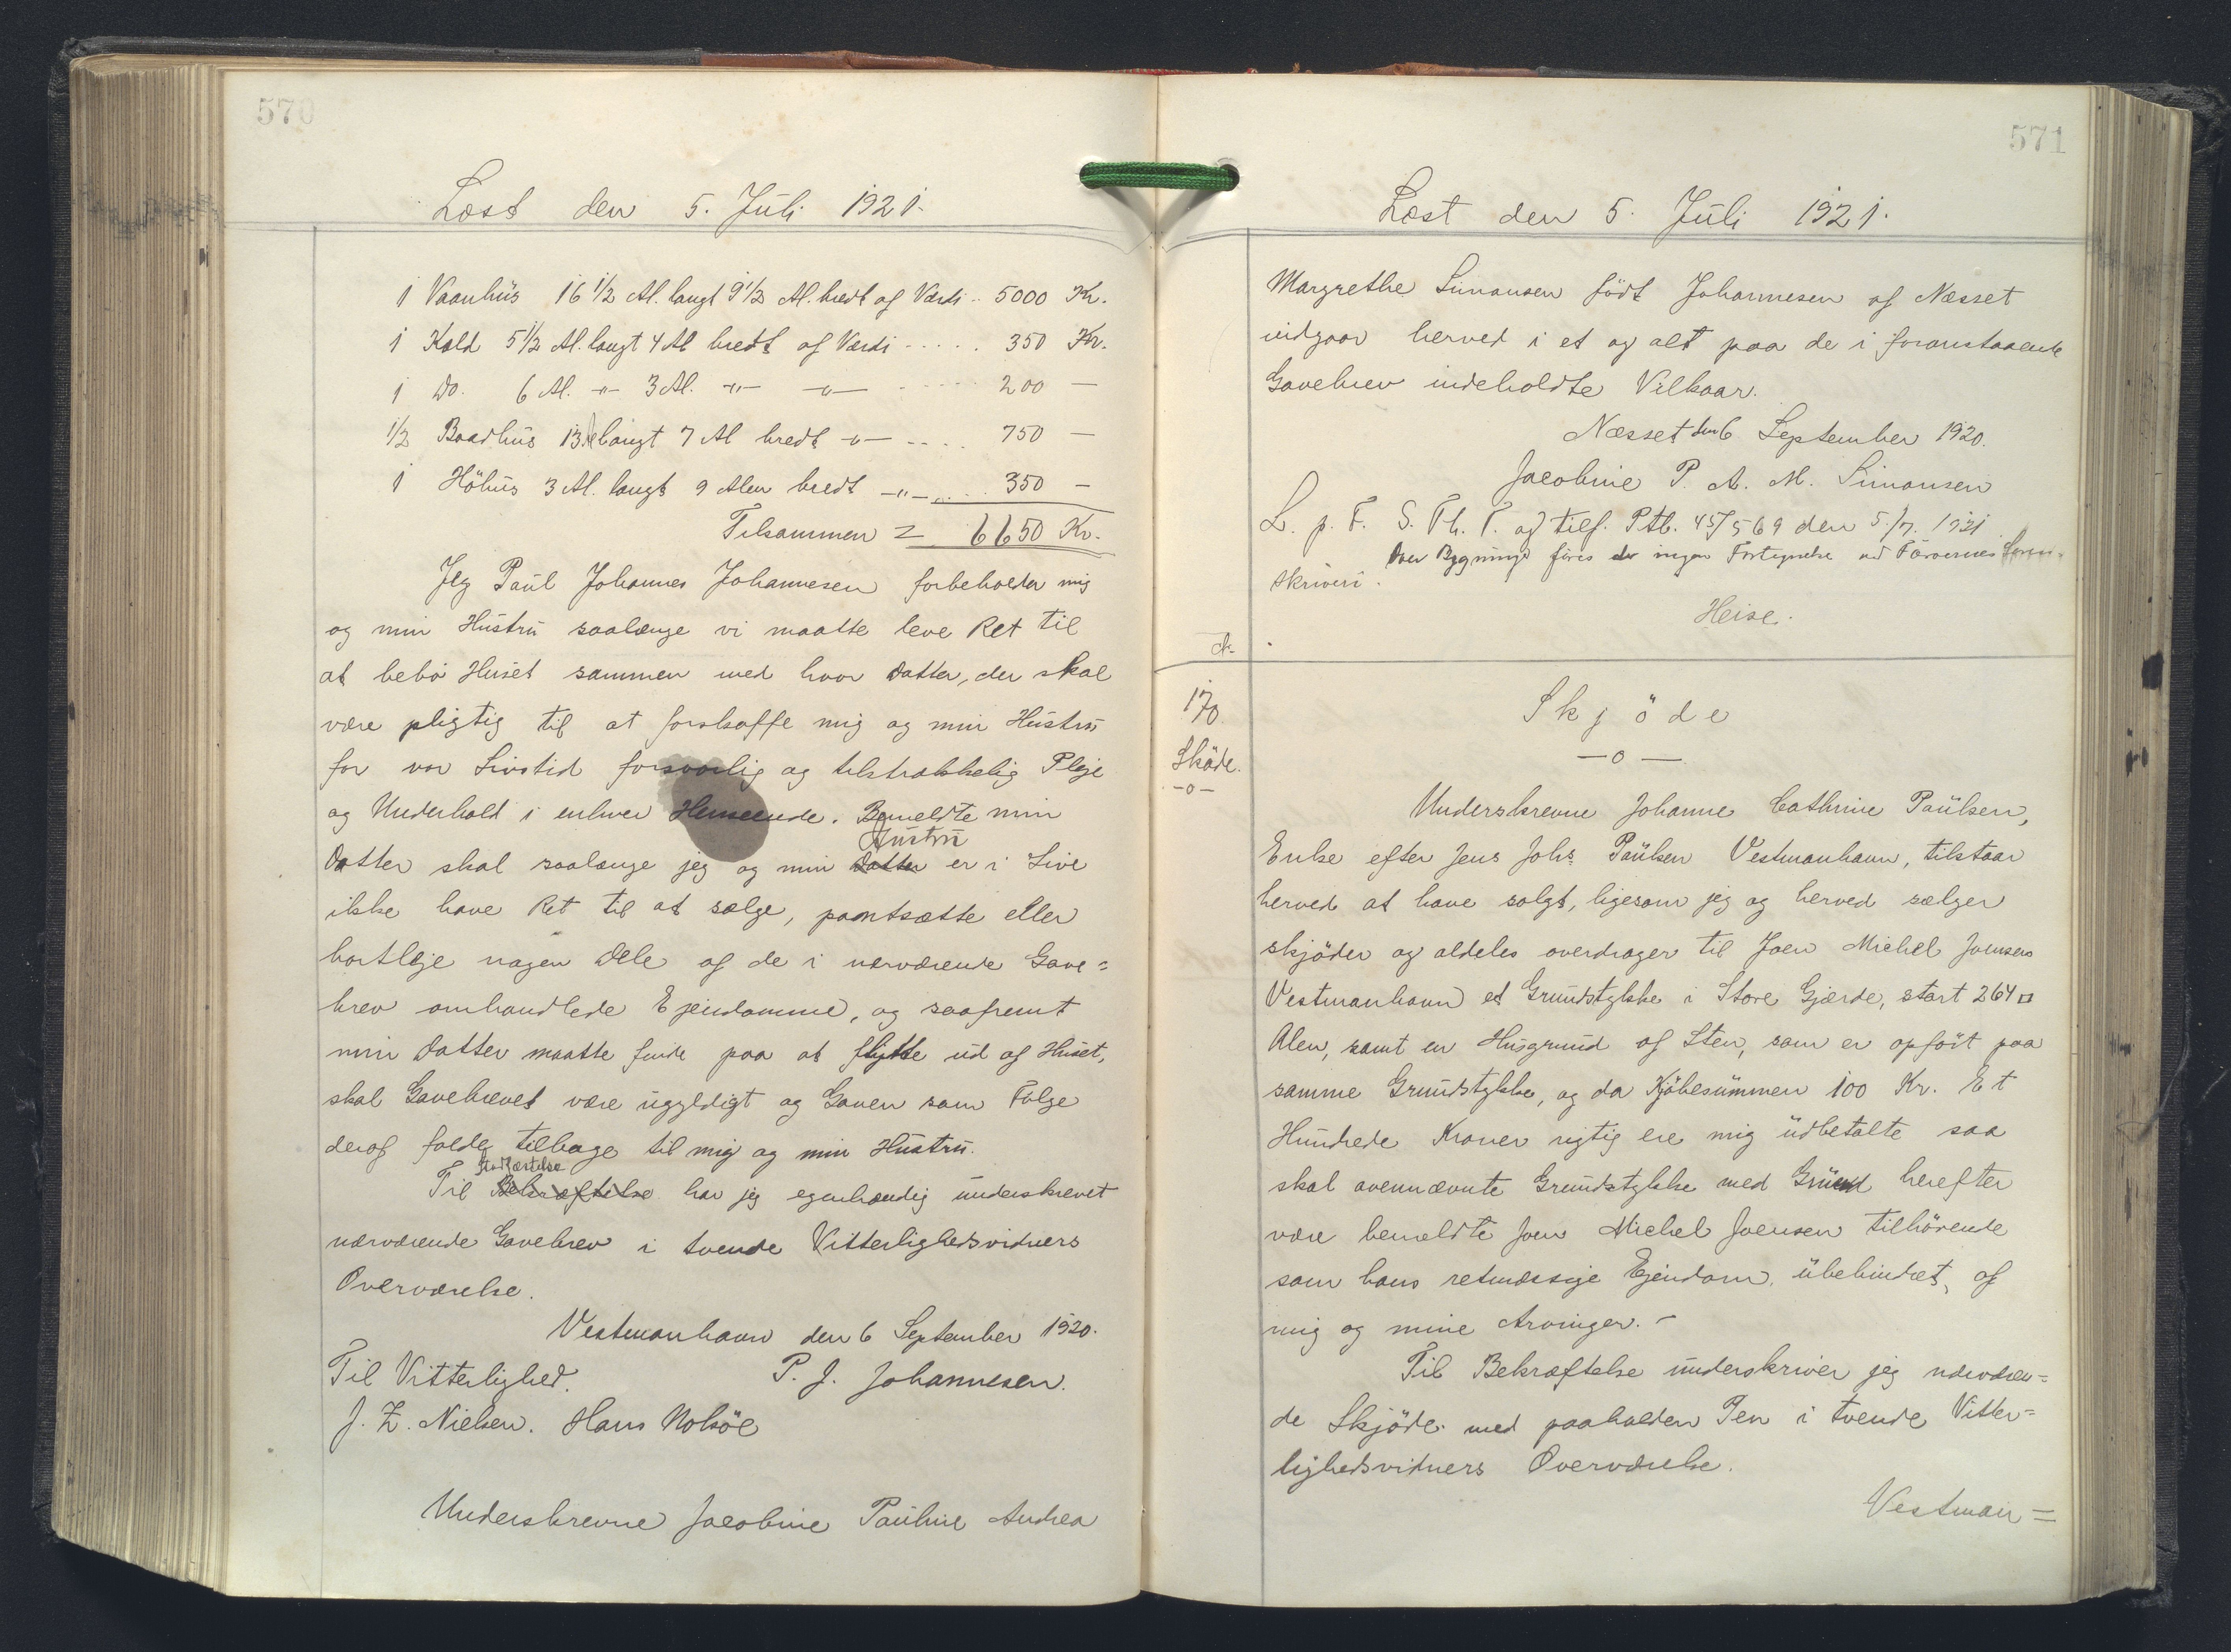 570
Læst den 5. Juli 1921.
1 Vaanhus 16 1/2 Al. langt 9 1/2 Al. bredt af Værdi .. 5000 Kr.
1 Kald 5 1/2 Al. langt 4 Al bredt af Værdi ..... 350 Kr.
1 Do. 6 Al. -"- 3 Al. -"- -"- ..... 200 -
1/2 Baadhus 13 Al langt 7 Al bredt -"- .... 750 -
1 Höhus 3 Al. langt 9 Alen bredt -"- .... 350 -
Tilsammen = 6650 Kr.
Jeg Paul Johannes Johannesen forbeholder mig
og min Hustru saalænge vi maatte leve Ret til
at bebo Huset sammen med hvor Datter, der skal
være pligtig til at forskaffe mig og min Hustru
for vor Livstid forsvarlig og tilstrækkelig Pleje
og Underhold i enhver Henseende. Bemeldte min
Hustru
Datter skal saalænge jeg og min Datter er i Live
ikke have Ret til at sælge, pantsætte eller
bortleje nogen Dele af de i nærværende Gave=
brev omhandlede Ejendomme, og saafremt
min Datter maatte finde paa at flytte ud af Huset,
skal Gavebrevet være ugyldigt og Gaven som Følge
deraf falde tilbage til mig og min Hustru.
Stadfæstelse
Til Bekræftelse har jeg egenhændig underskrevet
nærværende Gavebrev i tvende Vitterlighedsvidners
Overværelse.
Vestmanhavn den 6 September 1920.
Til Vitterlighed. P. J. Johannesen.
J. Z. Nielsen. Hans Nolsöe
Underskrevne Jacobine Pauline Andrea
571
Læst den 5. Juli 1921.
Margrethe Simonsen född Johannesen af Næsset
indgaar herved i et og alt paa de i foranstaaende
Gavebrev indeholdte Vilkaar.
Næsset den 6 September 1920.
Jacobine P. A. M. Simonsen
L. p. F. S. Th. T. og tilf. Ptb. 45/569 den 5./7. 1921
Over Bygninger föres der ingen Fortegnelse ved Færøernes Soren=
skriveri.
Heise.
A.
170
Sköde.
-o-
Skjöde
-o-
Underskrevne Johanne Cathrine Paulsen,
Enke efter Jens Johs. Paulsen Vestmanhavn, tilstaar
herved at have solgt, ligesom jeg og herved sælger
skjöder og aldeles overdrager til Joen Michel Joensen
Vestmanhavn et Grundstykke i Store Gjærde, stort 264 □
Alen, samt en Husgrund af Sten, som er opfört paa
samme Grundstykke, og da Kjöbesummen 100 Kr. Et
Hundrede Kroner rigtig ere mig udbetalte saa
skal ovennævnte Grundstykke med Grund herefter
være bemeldte Joen Michel Joensen tilhörende
som hans retmæssige Ejendom, ubehindret, af
mig og mine Arvinger. -
Til Bekræftelse underskriver jeg nærværen=
de Skjöde med paaholden Pen i tvende Vitter=
lighedsvidners Overværelse.
Vestman=